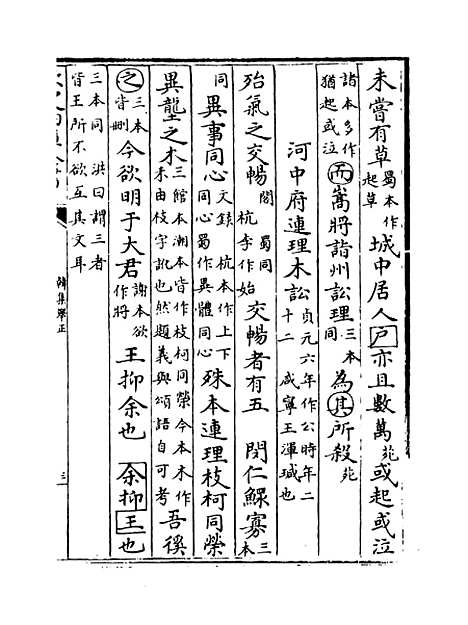 未嘗有草蜀本作起草城中居人戶亦且數萬苑或起或泣
諸本多作猶起或泣而嵩將詣州訟理三本同為其所殺苑
河中府連理木訟貞元六年作公時年二十二咸寧王渾瑊也
殆氣之交暢閣杭蜀同李作始交暢者有五閔仁鰥寡三本
同異事同心文錄杭本作上下同心蜀作異體同心殊本連理枝柯同榮
異壟之木三館本潮本皆作枝柯同榮今本木作木由枝字訛也然題義與頌語自可考吾徯
之三本皆刪今欲明于大君謝本欲作將王抑余也余抑王也
三本同洪曰謂三者皆王所不欲互其文耳
韓集舉正
三